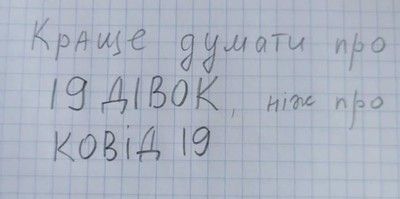 Краще думати про
19 ДІВОК, ніж про
КОВІД 19